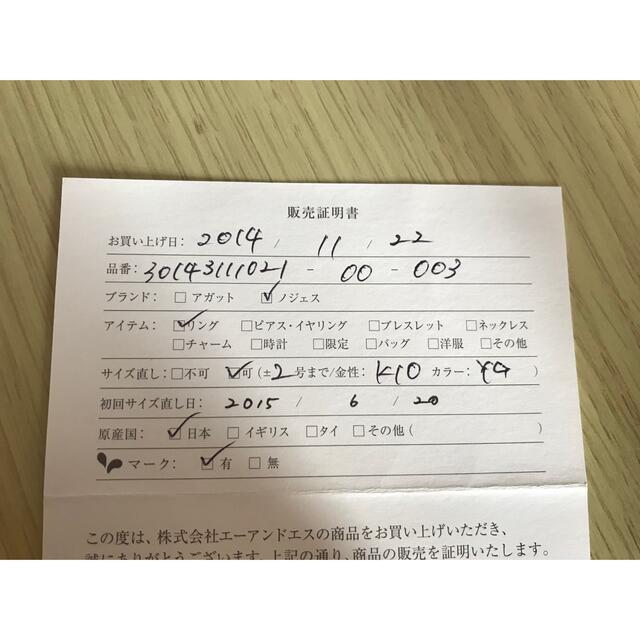 販売証明書
お買い上げ日: 2014 / 11 / 22
品番: 30143111021 - 00 - 003
ブランド: □ アガット ☑ ノジェス
アイテム: ☑リング □ピアス・イヤリング □ブレスレット □ネックレス
□チャーム □時計 □限定 □バッグ □洋服 □その他
サイズ直し: □不可 ☑可 (±2号まで/金性: K10 カラー: YG )
初回サイズ直し日: 2015 / 6 / 20
原産国: ☑日本 □イギリス □タイ □その他 ( )
マーク: ☑有 □無
この度は、株式会社エーアンドエスの商品をお買い上げいただき、
誠にありがとうございます。上記の通り、商品の販売を証明いたします。